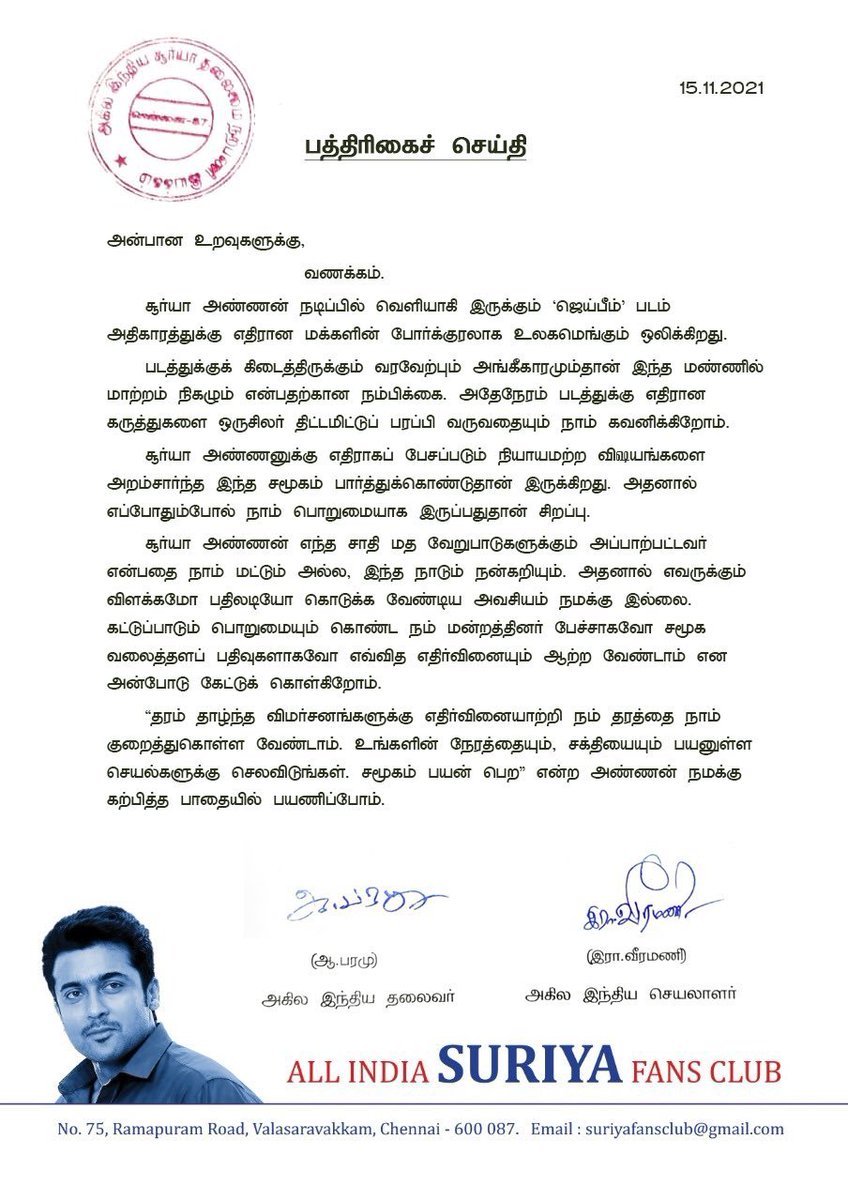 அகில இந்திய சூர்யா தலைமை நற்பணி இயக்கம்
சென்னை-87
15.11.2021
பத்திரிகைச் செய்தி
அன்பான உறவுகளுக்கு,
வணக்கம்.
சூர்யா அண்ணன் நடிப்பில் வெளியாகி இருக்கும் ‘ஜெய்பீம்’ படம்
அதிகாரத்துக்கு எதிரான மக்களின் போர்க்குரலாக உலகமெங்கும் ஒலிக்கிறது.
படத்துக்குக் கிடைத்திருக்கும் வரவேற்பும் அங்கீகாரமும்தான் இந்த மண்ணில்
மாற்றம் நிகழும் என்பதற்கான நம்பிக்கை. அதேநேரம் படத்துக்கு எதிரான
கருத்துகளை ஒருசிலர் திட்டமிட்டுப் பரப்பி வருவதையும் நாம் கவனிக்கிறோம்.
சூர்யா அண்ணனுக்கு எதிராகப் பேசப்படும் நியாயமற்ற விஷயங்களை
அறம்சார்ந்த இந்த சமூகம் பார்த்துக்கொண்டுதான் இருக்கிறது. அதனால்
எப்போதும்போல் நாம் பொறுமையாக இருப்பதுதான் சிறப்பு.
சூர்யா அண்ணன் எந்த சாதி மத வேறுபாடுகளுக்கும் அப்பாற்பட்டவர்
என்பதை நாம் மட்டும் அல்ல, இந்த நாடும் நன்கறியும். அதனால் எவருக்கும்
விளக்கமோ பதிலடியோ கொடுக்க வேண்டிய அவசியம் நமக்கு இல்லை.
கட்டுப்பாடும் பொறுமையும் கொண்ட நம் மன்றத்தினர் பேச்சாகவோ சமூக
வலைத்தளப் பதிவுகளாகவோ எவ்வித எதிர்வினையும் ஆற்ற வேண்டாம் என
அன்போடு கேட்டுக் கொள்கிறோம்.
“தரம் தாழ்ந்த விமர்சனங்களுக்கு எதிர்வினையாற்றி நம் தரத்தை நாம்
குறைத்துகொள்ள வேண்டாம். உங்களின் நேரத்தையும், சக்தியையும் பயனுள்ள
செயல்களுக்கு செலவிடுங்கள். சமூகம் பயன் பெற” என்ற அண்ணன் நமக்கு
கற்பித்த பாதையில் பயணிப்போம்.
இரா.வீரமணி
(ஆ.பரமு)
(இரா.வீரமணி)
அகில இந்திய தலைவர்
அகில இந்திய செயலாளர்
ALL INDIA SURIYA FANS CLUB
No. 75, Ramapuram Road, Valasaravakkam, Chennai - 600 087. Email : suriyafansclub@gmail.com